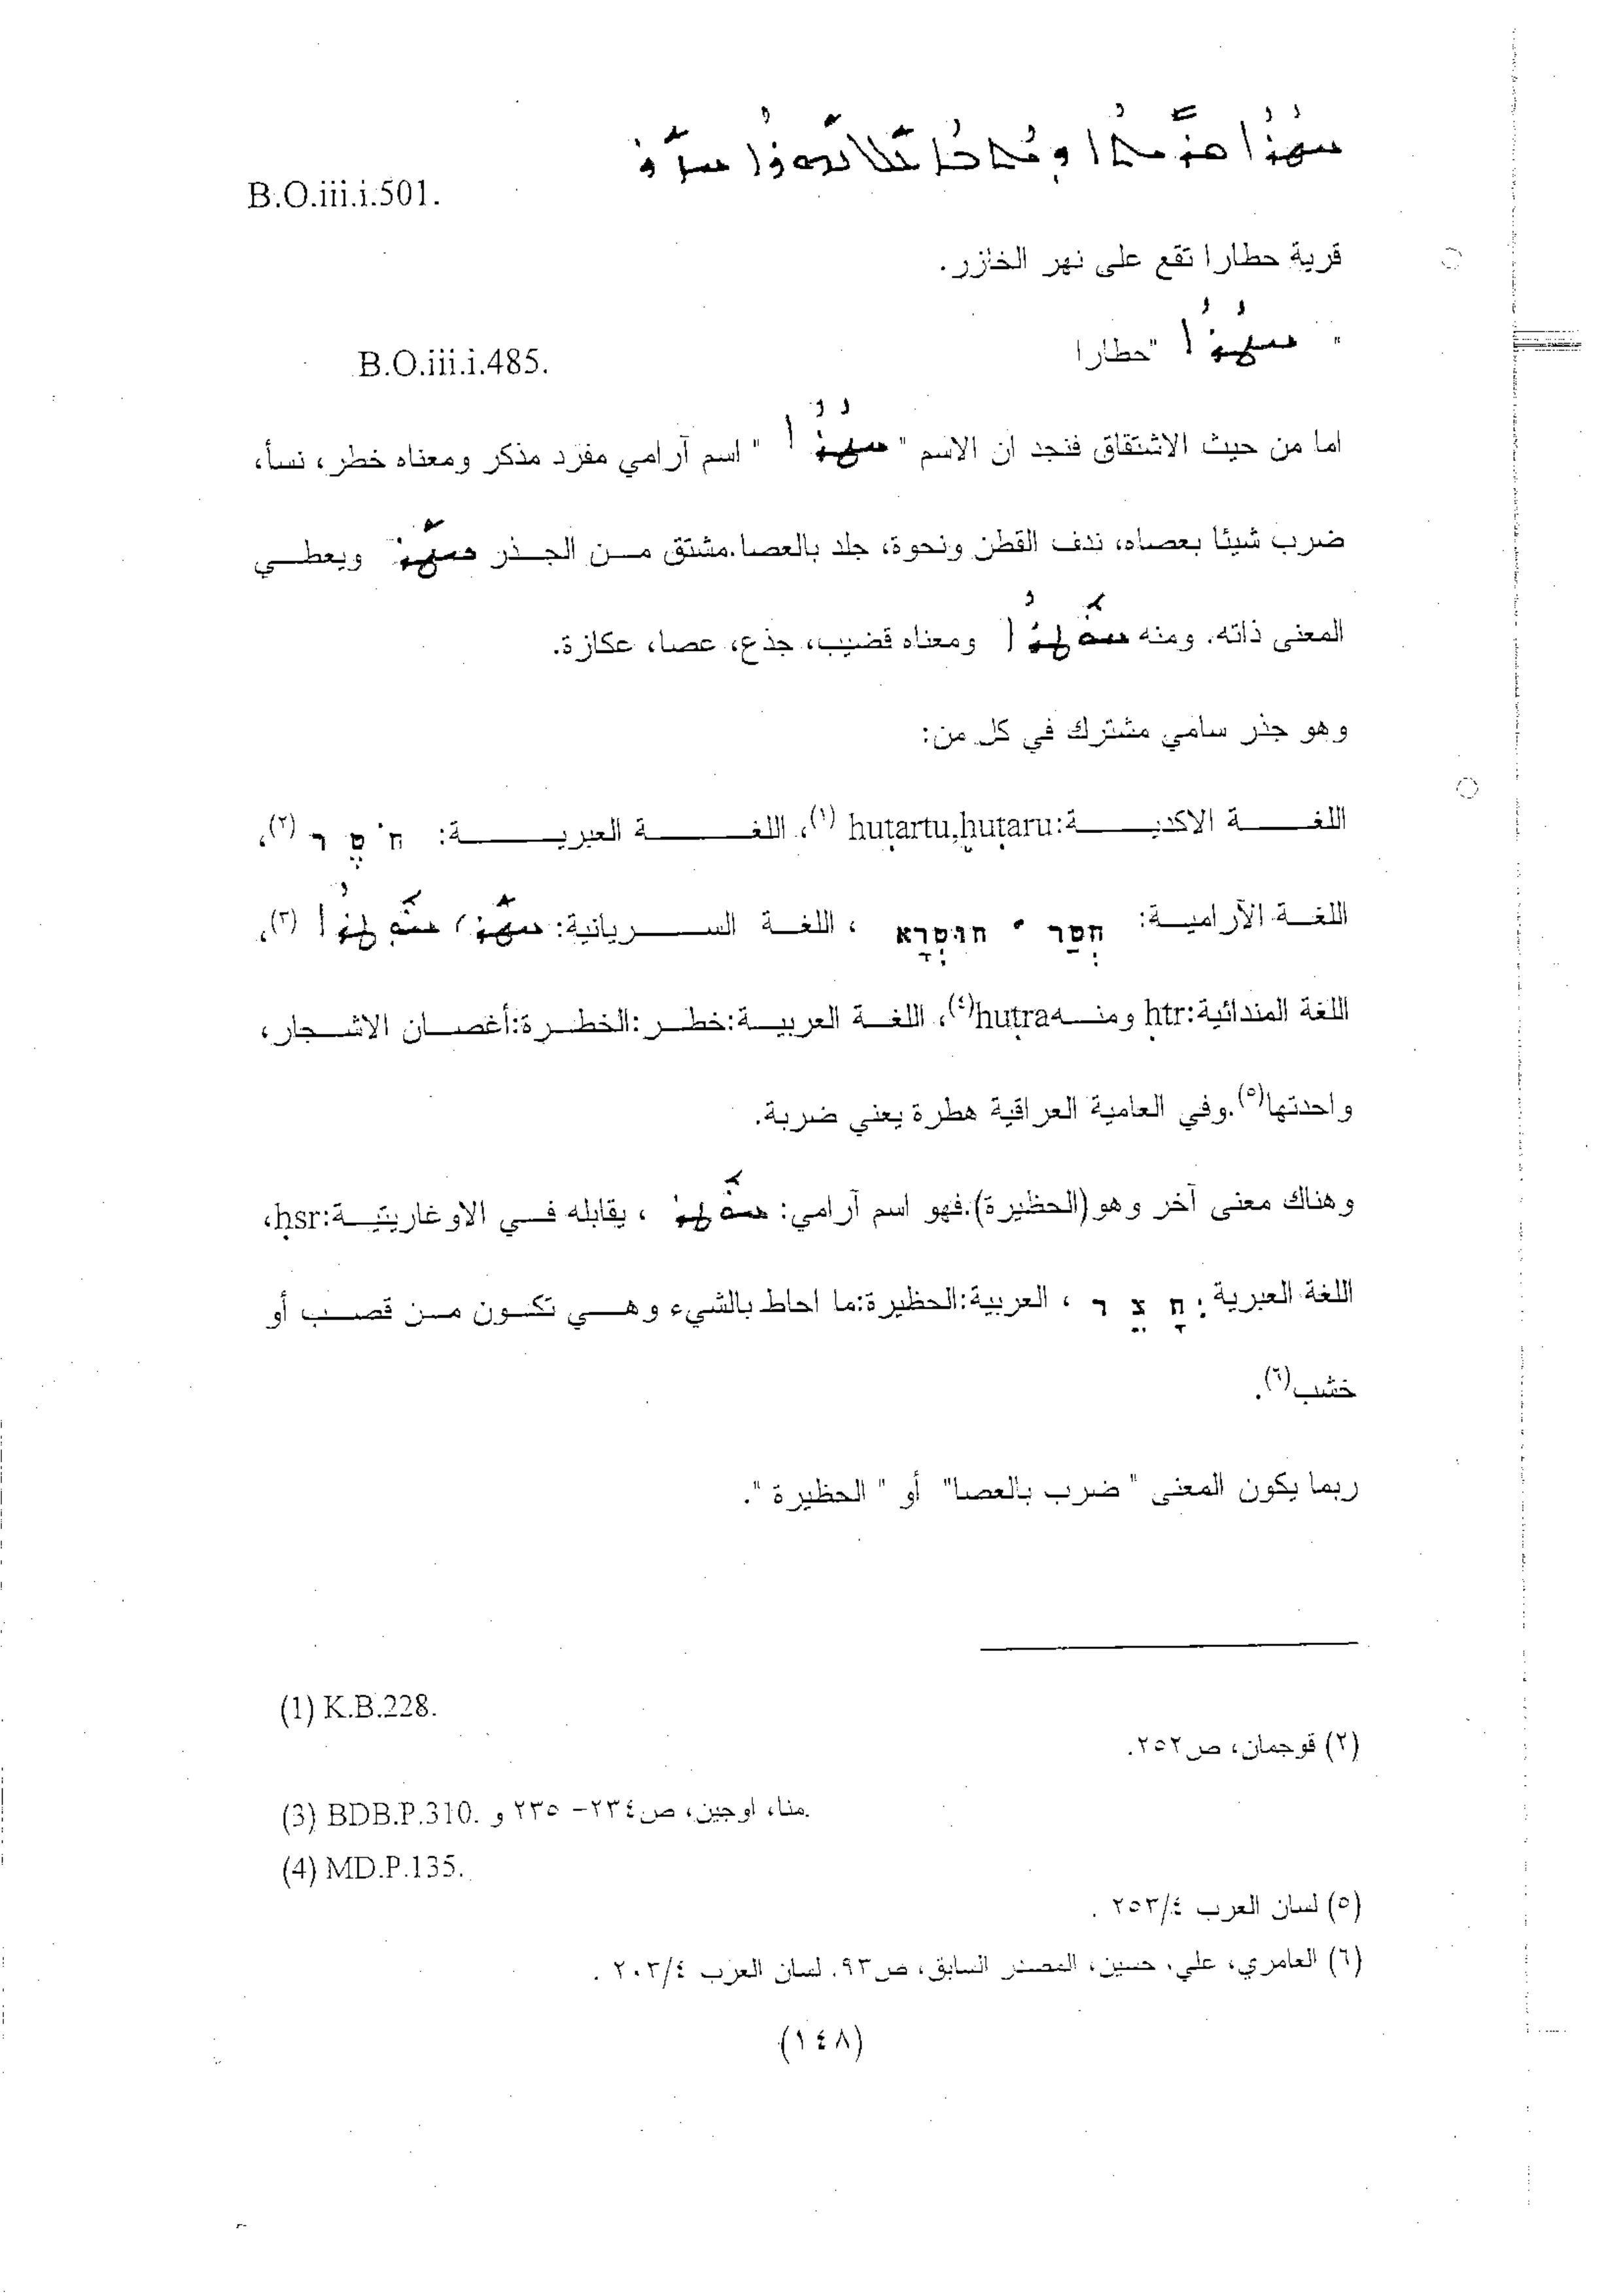 ܚܛܪܐ ܩܪܝܬܐ ܕܝܬܒܐ ܥܠ ܢܗܪܐ B.O.iii.i.501.
قرية حطارا تقع على نهر الخازر.
" ܚܛܪܐ "حطارا B.O.iii.i.485.
اما من حيث الاشتقاق فنجد ان الاسم " ܚܛܪܐ " اسم آرامي مفرد مذكر ومعناه خطر، نسأ،
ضرب شيئا بعصاه، ندف القطن ونحوة، جلد بالعصا.مشتق من الجذر ܚܛܪ ويعطي
المعنى ذاته. ومنه ܚܘܛܪܐ ومعناه قضيب، جذع، عصا، عكازة.
وهو جذر سامي مشترك في كل من:
اللغة الاكدية:ḫuṭartu,ḫuṭaru (١)، اللغة العبرية: חֹטֶר (٢)،
اللغة الآرامية: חְטַר ، חוּטְרָא ، اللغة السريانية: ܚܛܪ، ܚܘܛܪܐ (٣)،
اللغة المندائية:hṭr ومنه huṭra(٤)، اللغة العربية:خطر:الخطرة:أغصان الاشجار،
واحدتها(٥).وفي العامية العراقية هطرة يعني ضربة.
وهناك معنى آخر وهو(الحظيرة).فهو اسم آرامي: ܚܘܛܪ ، يقابله في الاوغاريتية:ḥsr،
اللغة العبرية: חָצֵר ، العربية:الحظيرة:ما احاط بالشيء وهي تكون من قصب أو
خشب(٦).
ربما يكون المعنى " ضرب بالعصا" أو " الحظيرة ".
(1) K.B.228.
(٢) قوجمان، ص٢٥٢.
(3) BDB.P.310. و منا، اوجين، ص٢٣٤- ٢٣٥.
(4) MD.P.135.
(٥) لسان العرب ٢٥٣/٤ .
(٦) العامري، علي حسين، المصدر السابق، ص٩٣. لسان العرب ٢٠٣/٤ .
(١٤٨)